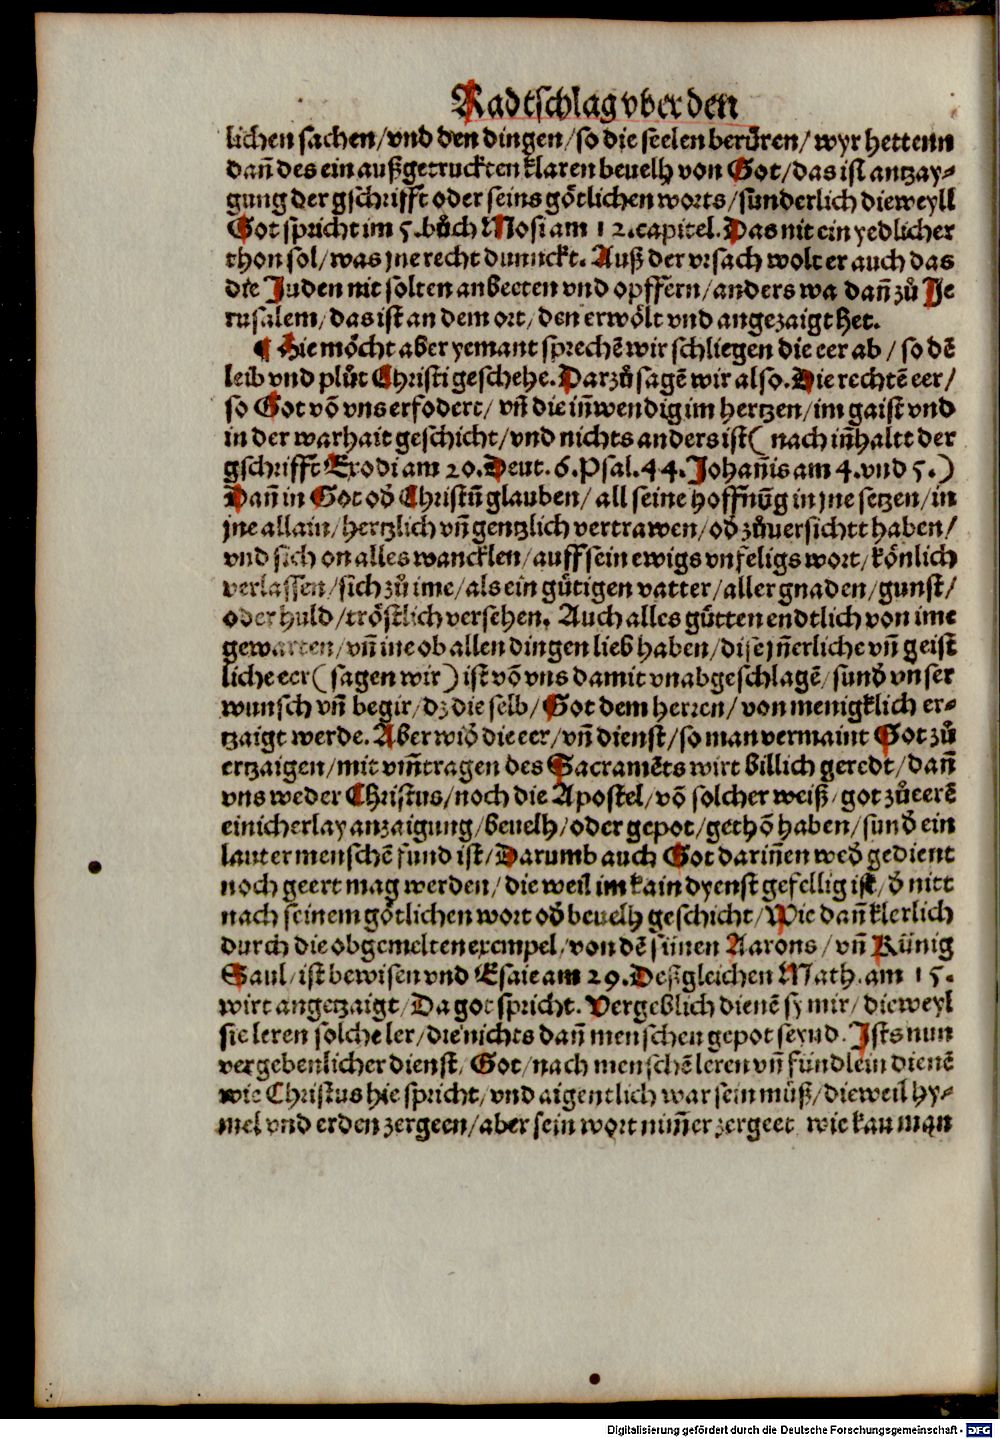 Radtschlag vber den
lichen sachen/vnd den dingen/so die seelen berüren/wyr hettenn
dan̄ des ein außgetruckten klaren beuelh von Got/das ist antzay⸗
gung der gschrifft oder seins götlichen worts/sunderlich dieweyll
Got spricht im 5.bůch Mosi am 12.capitel.Das nit ein yedlicher
thon sol/was jne recht dunnckt. Auß der vrsach wolt er auch das
die Juden nit solten anbeeten vnd opffern/anders wa dan̄ zů Je
rusalem/das ist an dem ort/den erwölt vnd angezaigt het.
¶ Hie möcht aber yemant sprechē wir schliegen die eer ab/so dē
leib vnd plůt Christi geschehe.Darzů sagē wir also.Die rechtē eer/
so Got vō vns erfodert/vn̄ die in̄wendig im hertzen/im gaist vnd
in der warhait geschicht/vnd nichts anders ist( nach in̄haltt der
gschrifft Exodi am 20.Deut.6.Psal.44.Johan̄is am 4.vnd 5.)
Dan̄ in Got od̕ Christū glauben/all seine hoffnūg in jne setzen/in
jne allain/hertzlich vn̄ gentzlich vertrawen/od̕ zůuersichtt haben/
vnd sich on alles wancklen/auff sein ewigs vnfeligs wort/könlich
verlassen/sich zů ime/als ein gütigen vatter/aller gnaden/gunst/
oder huld/tröstlich versehen. Auch alles gůtten endtlich von ime
gewarten/vn̄ ine ob allen dingen lieb haben/dise jn̄erliche vn̄ geist
liche eer(sagen wir)ist vō vns damit vnabgeschlagē/sund̕ vnser
wunsch vn̄ begir/dz die selb/Got dem herren/von menigklich er⸗
tzaigt werde.Aber wid̕ die eer/vn̄ dienst/so man vermaint Got zů
ertzaigen/mit vm̄tragen des Sacramēts wirt billich geredt/dan̄
vns weder Christus/noch die Apostel/vō solcher weiß/got zůeerē
einicherlay anzaigung/beuelh/oder gepot/gethō haben/sund̕ ein
lauter menschē fund ist/Darumb auch Got darin̄en wed̕ gedient
noch geert mag werden/die weil im kain dyenst gefellig ist/d̕ nitt
nach seinem götlichen wort od̕ beuelh geschicht/Wie dan̄ klerlich
durch die obgemelten exempel/von dē sünen Aarons/vn̄ Künig
Saul/ist bewisen vnd Esaie am 29.Deßgleichen Math.am 15.
wirt angetzaigt/Da got spricht.Vergeblich dienē sy mir/dieweyl
sie leren solche ler/die nichts dan̄ menschen gepot seynd.Ists nun
vergebenlicher dienst/Got/nach menschē leren vn̄ fündlein dienē
wie Christus hie spricht/vnd aigentlich war sein můß/dieweil hy⸗
mel vnd erden zergeen/aber sein wort nim̄er zergeet wie kan man
Digitalisierung gefördert durch die Deutsche Forschungsgemeinschaft - DFG